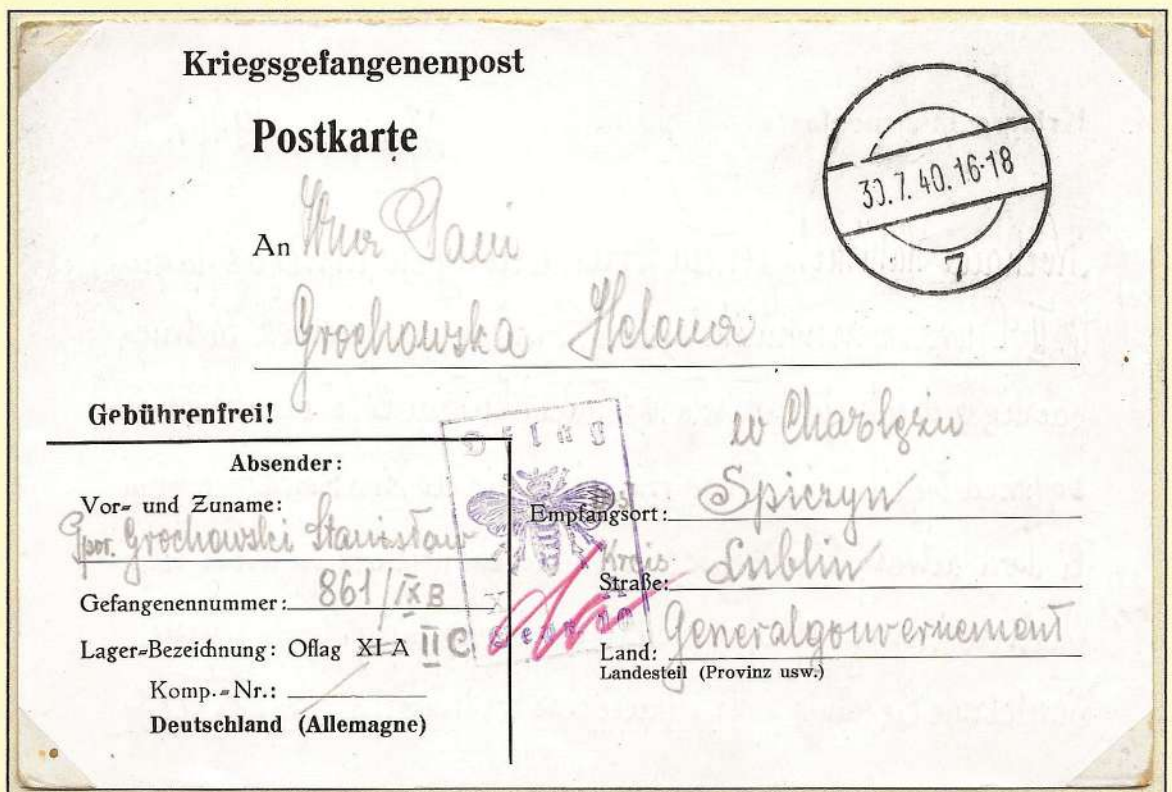 Kriegsgefangenenpost
Postkarte
30.7.40.16-18
7
An Wna Pani
Grochowska Helena
Gebührenfrei!
w Charlężu
Absender:
Vor- und Zuname:
Ppor. Grochowski Stanisław
Gefangenennummer: 861/IX B
Lager-Bezeichnung: Oflag XI A II C
Komp.-Nr.:
Deutschland (Allemagne)
Oflag
Empfangsort: Spiczyn
Kreis
Straße: Lublin
Land: Generalgouvernement
Landesteil (Provinz usw.)